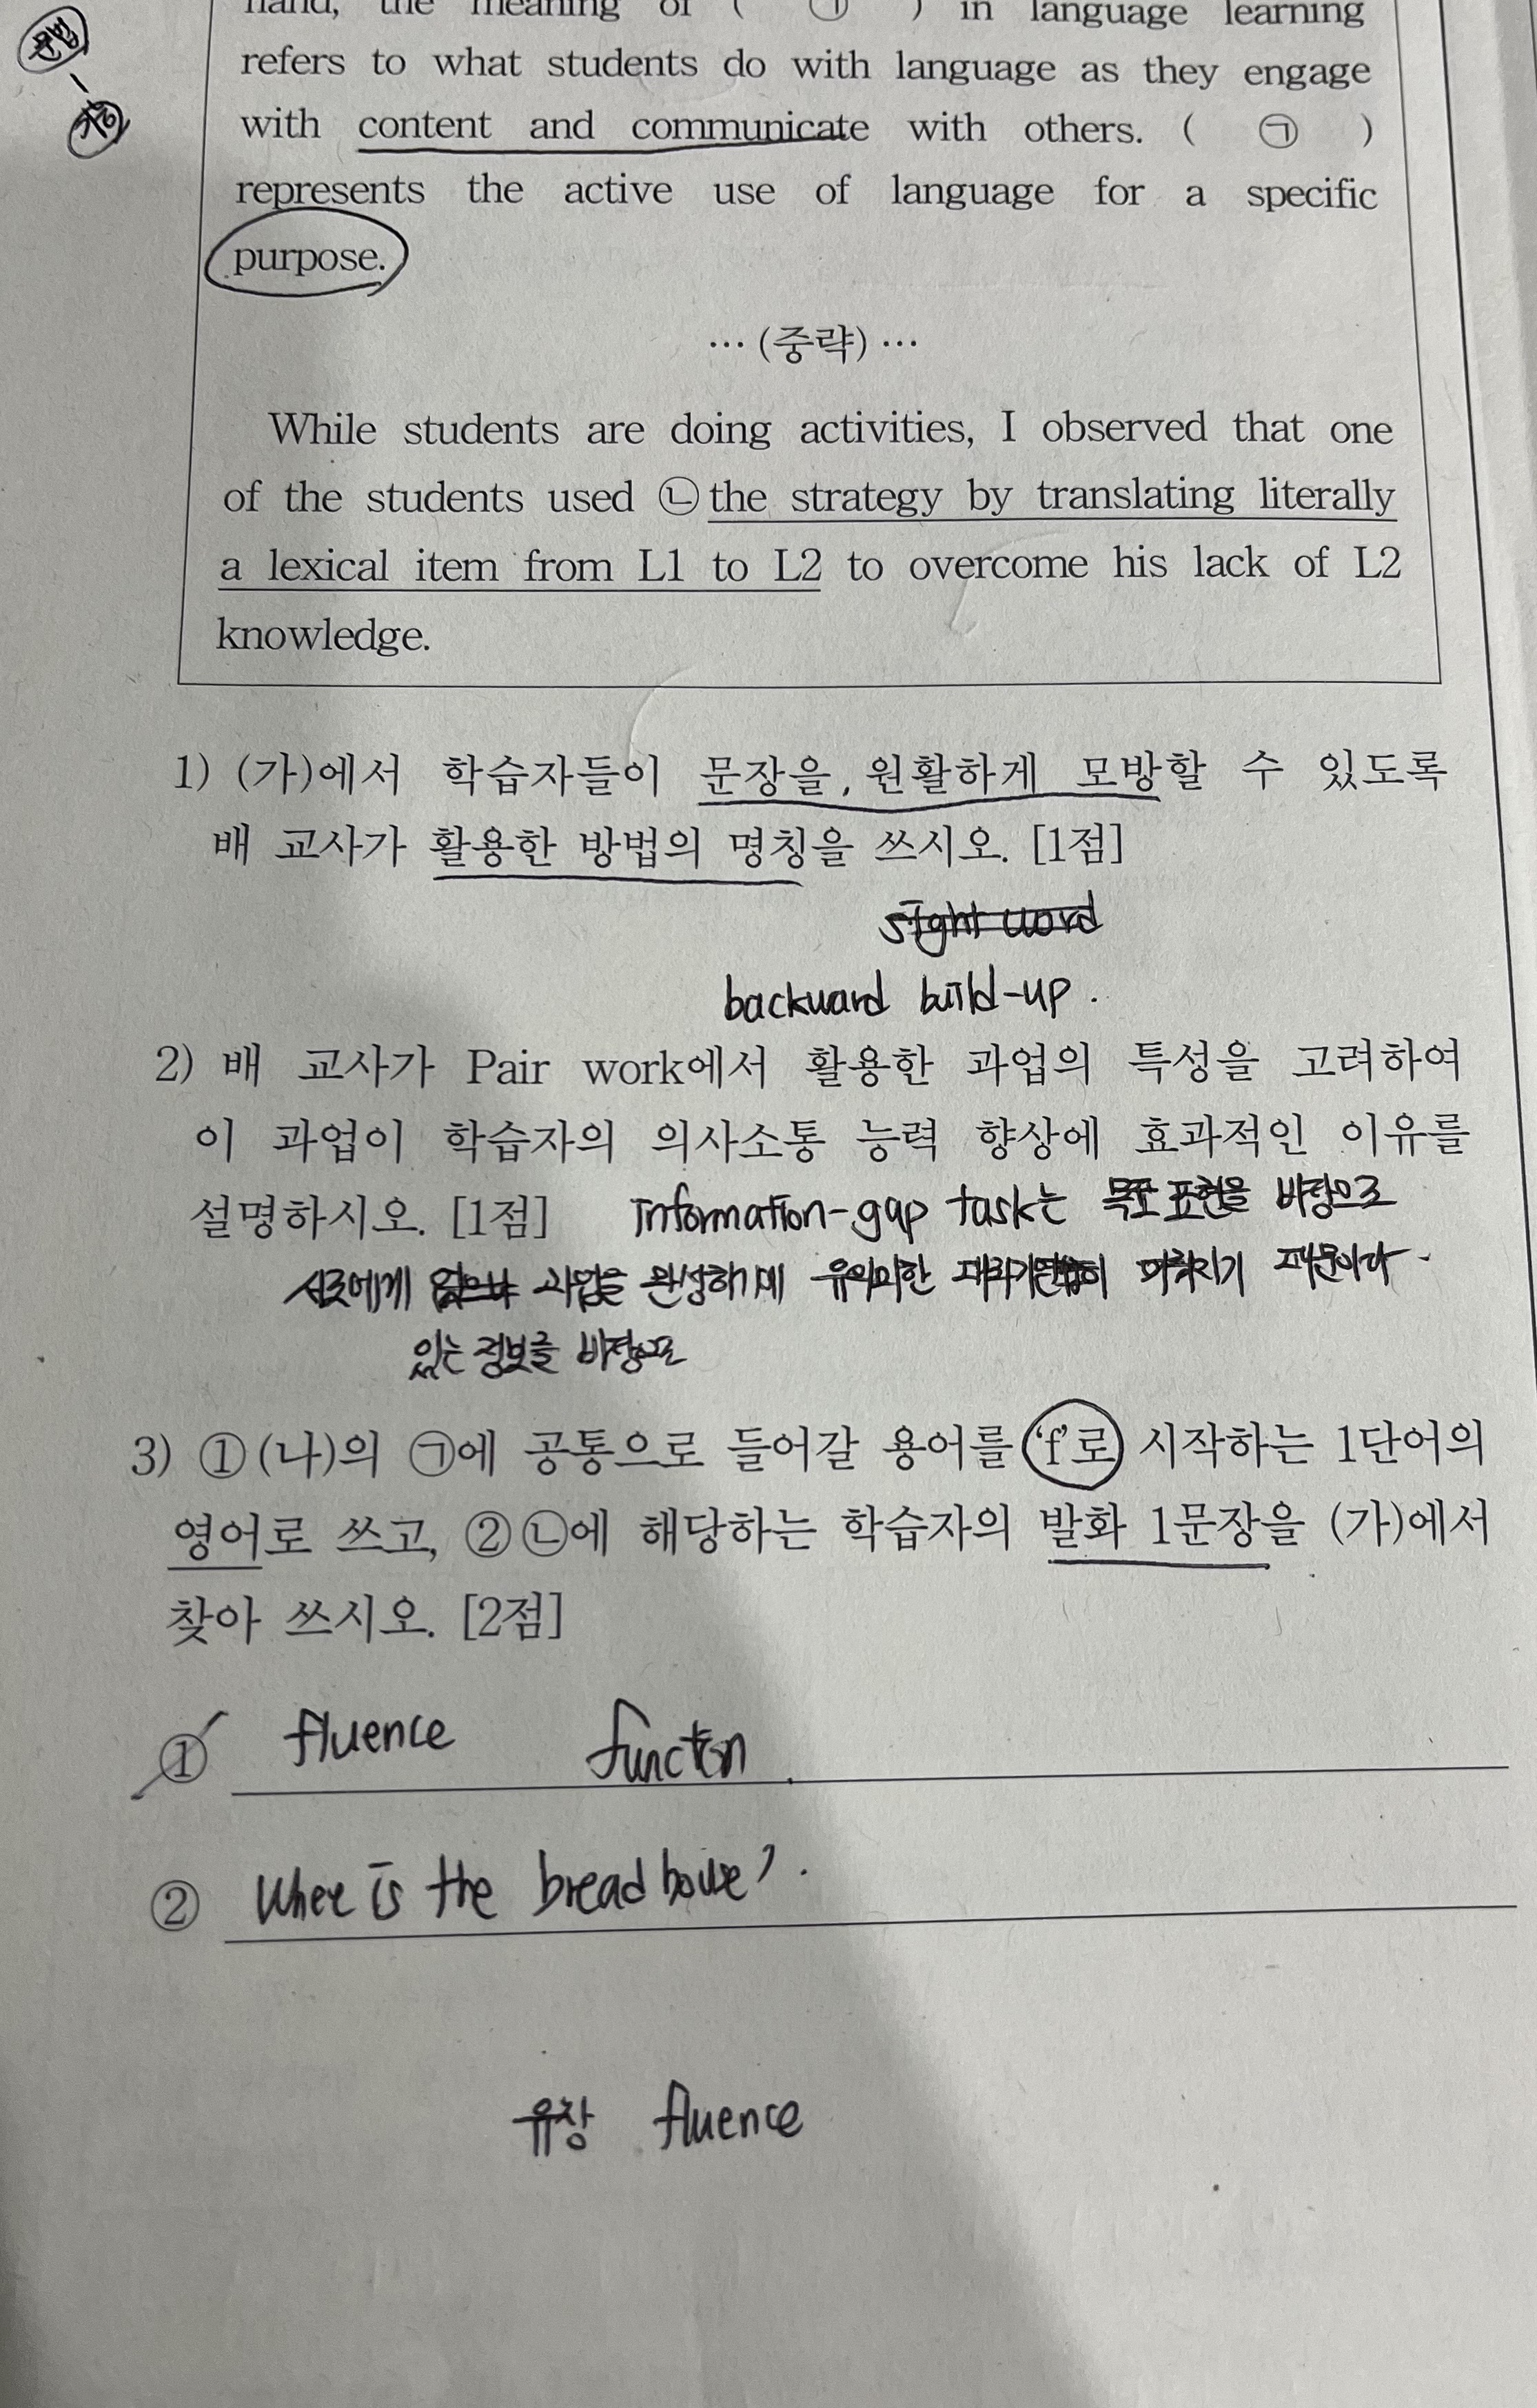 hand, the meaning of ( ㉠ ) in language learning
refers to what students do with language as they engage
with content and communicate with others. ( ㉠ )
represents the active use of language for a specific
purpose.
… (중략) …
While students are doing activities, I observed that one
of the students used ㉡the strategy by translating literally
a lexical item from L1 to L2 to overcome his lack of L2
knowledge.
1) (가)에서 학습자들이 문장을, 원활하게 모방할 수 있도록
배 교사가 활용한 방법의 명칭을 쓰시오. [1점]
sight word
backward build-up.
2) 배 교사가 Pair work에서 활용한 과업의 특성을 고려하여
이 과업이 학습자의 의사소통 능력 향상에 효과적인 이유를
설명하시오. [1점] information-gap task는 목표 표현을 바탕으로
서로에게 과업을 완성하기에 유의미한 이뤄지기 때문이다.
있는 정보를 바탕으로
3) ①(나)의 ㉠에 공통으로 들어갈 용어를 'f'로 시작하는 1단어의
영어로 쓰고, ②㉡에 해당하는 학습자의 발화 1문장을 (가)에서
찾아 쓰시오. [2점]
① fluence function.
② Where is the bread house?.
유창 fluence